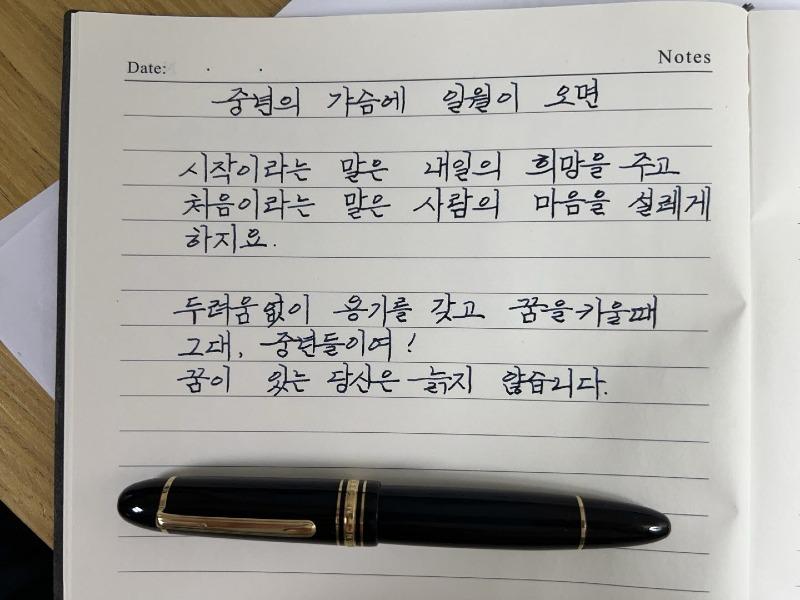 Date: . .
Notes
중년의 가슴에 일월이 오면
시작이라는 말은 내일의 희망을 주고
처음이라는 말은 사람의 마음을 설레게
하지요.
두려움없이 용기를 갖고 꿈을 키울때
그대, 중년들이여!
꿈이 있는 당신은 늙지 않습니다.